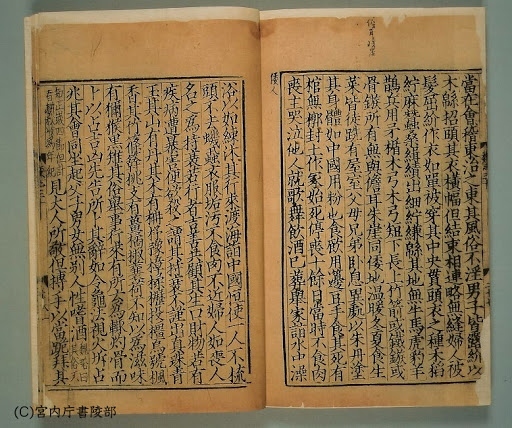 當在會稽東治之東其風俗不淫男子皆露紒以
木緜招頭其衣橫幅但結束相連略無縫婦人被
髮屈紒作衣如單被穿其中央貫頭衣之種禾稻
紵麻蠶桑緝績出細紵縑緜其地無牛馬虎豹羊
鵲兵用矛楯木弓木弓短下長上竹箭或鐵鏃或
骨鏃所有無與儋耳朱崖同倭地溫暖冬夏食生
菜皆徒跣有屋室父母兄弟臥息異處以朱丹塗
其身體如中國用粉也食飲用籩豆手食其死有
棺無槨封土作冢始死停喪十餘日當時不食肉
喪主哭泣他人就歌舞飲酒已葬舉家詣水中澡
倭人
浴以如練沐其行來渡海詣中國恒使一人不梳
頭不去蟣蝨衣服垢污不食肉不近婦人如喪人
名之爲持衰若行者吉善共顧其生口財物若有
疾病遭暴害便欲殺之謂其持衰不謹出真珠青
玉其山有丹其木有柟杼豫樟楺櫪投橿烏號楓
香其竹篠簳桃支有薑橘椒蘘荷不知以爲滋味
有獮猴黑雉其俗舉事行來有所云爲輒灼骨而
卜以占吉凶先告所卜其辭如令龜法視火坼占
兆其會同坐起父子男女無別人性嗜酒魏略曰其俗不
知正歲四節但計春耕秋收爲年紀見大人所敬但搏手以當跪拜其
(C)宮内庁書陵部